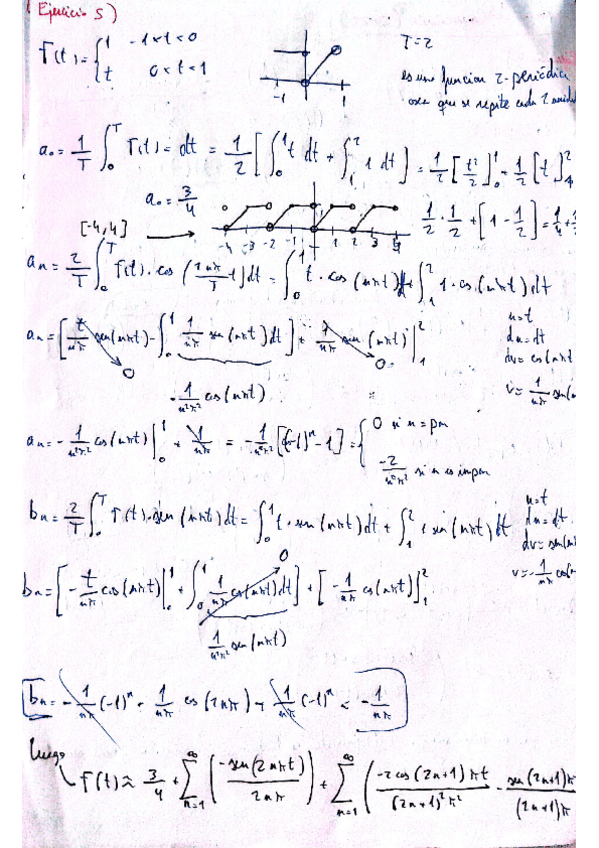 ( Ejercicio 5 )
f(t) = { 1 -1<t<0
t 0<t<1
T=2
es una funcion 2-periódica
osea que se repite cada 2
-1 1
a₀ = 1/T ∫₀^T f(t) = dt = 1/2 [ ∫₀^1 t dt + ∫₁^2 1 dt ] = 1/2 [ t²/2 ]₀^1 + 1/2 [ t ]₁^2
a₀ = 3/4
1/2 · 1/2 + [ 1 - 1/2 ] = 1/4 +
[-4,4] →
-4 -3 -2 -1 1 2 3 4
aₙ = 2/T ∫₀^T f(t) · cos ( 2nπ/T t ) dt = ∫₀^1 t · cos (nπt) dt + ∫₁^2 1 · cos (nπt) dt
u=t
du=dt
dv= cos(nπt
v= 1/nπ sen(n
aₙ = [ t/nπ sen(nπt) - ∫₀^1 1/nπ sen(nπt) dt ] + 1/nπ sen(nπt) |₁^2
0 0
- 1/n²π² cos(nπt)
aₙ = - 1/n²π² cos(nπt) |₀^1 + 1/nπ = - 1/n²π² [(-1)ⁿ - 1] = { 0 si n = par
-2/n²π² si n es impar
bₙ = 2/T ∫₀^T f(t) · sen (nπt) dt = ∫₀^1 t · sen (nπt) dt + ∫₁^2 1 sen (nπt) dt
u=t
du= dt
dv= sen(n
v= - 1/nπ cos(n
0
bₙ = [ - t/nπ cos(nπt) |₀^1 + ∫₀^1 1/nπ cos(nπt) dt ] + [ - 1/nπ cos(nπt) ]₁^2
1/n²π² sen(nπt)
bₙ = - 1/nπ (-1)ⁿ - 1/nπ cos (2nπ) + 1/nπ (-1)ⁿ = - 1/nπ
luego
f(t) ≈ 3/4 + ∑ₙ₌₁^∞ ( -sen(2nπt) / 2nπ ) + ∑ₙ₌₁^∞ ( -2 cos (2n+1) πt / (2n+1)² π² - sen(2n+1)π / (2n+1)π